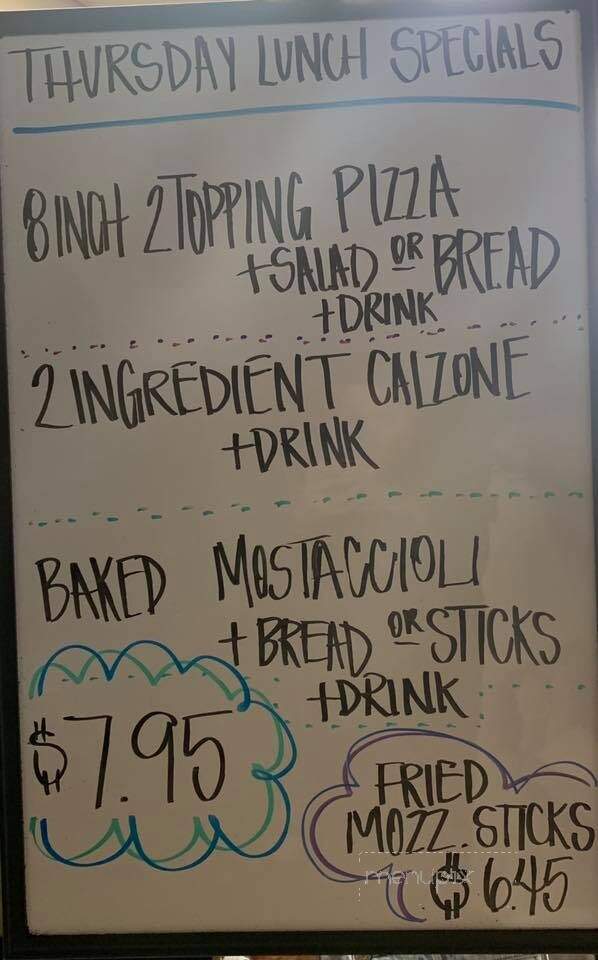 THURSDAY LUNCH SPECIALS
8 INCH 2 TOPPING PIZZA
+ SALAD OR BREAD
+ DRINK
2 INGREDIENT CALZONE
+ DRINK
BAKED MOSTACCIOLI
+ BREAD OR STICKS
+ DRINK
$7.95
FRIED
MOZZ. STICKS
$6.45
menupix